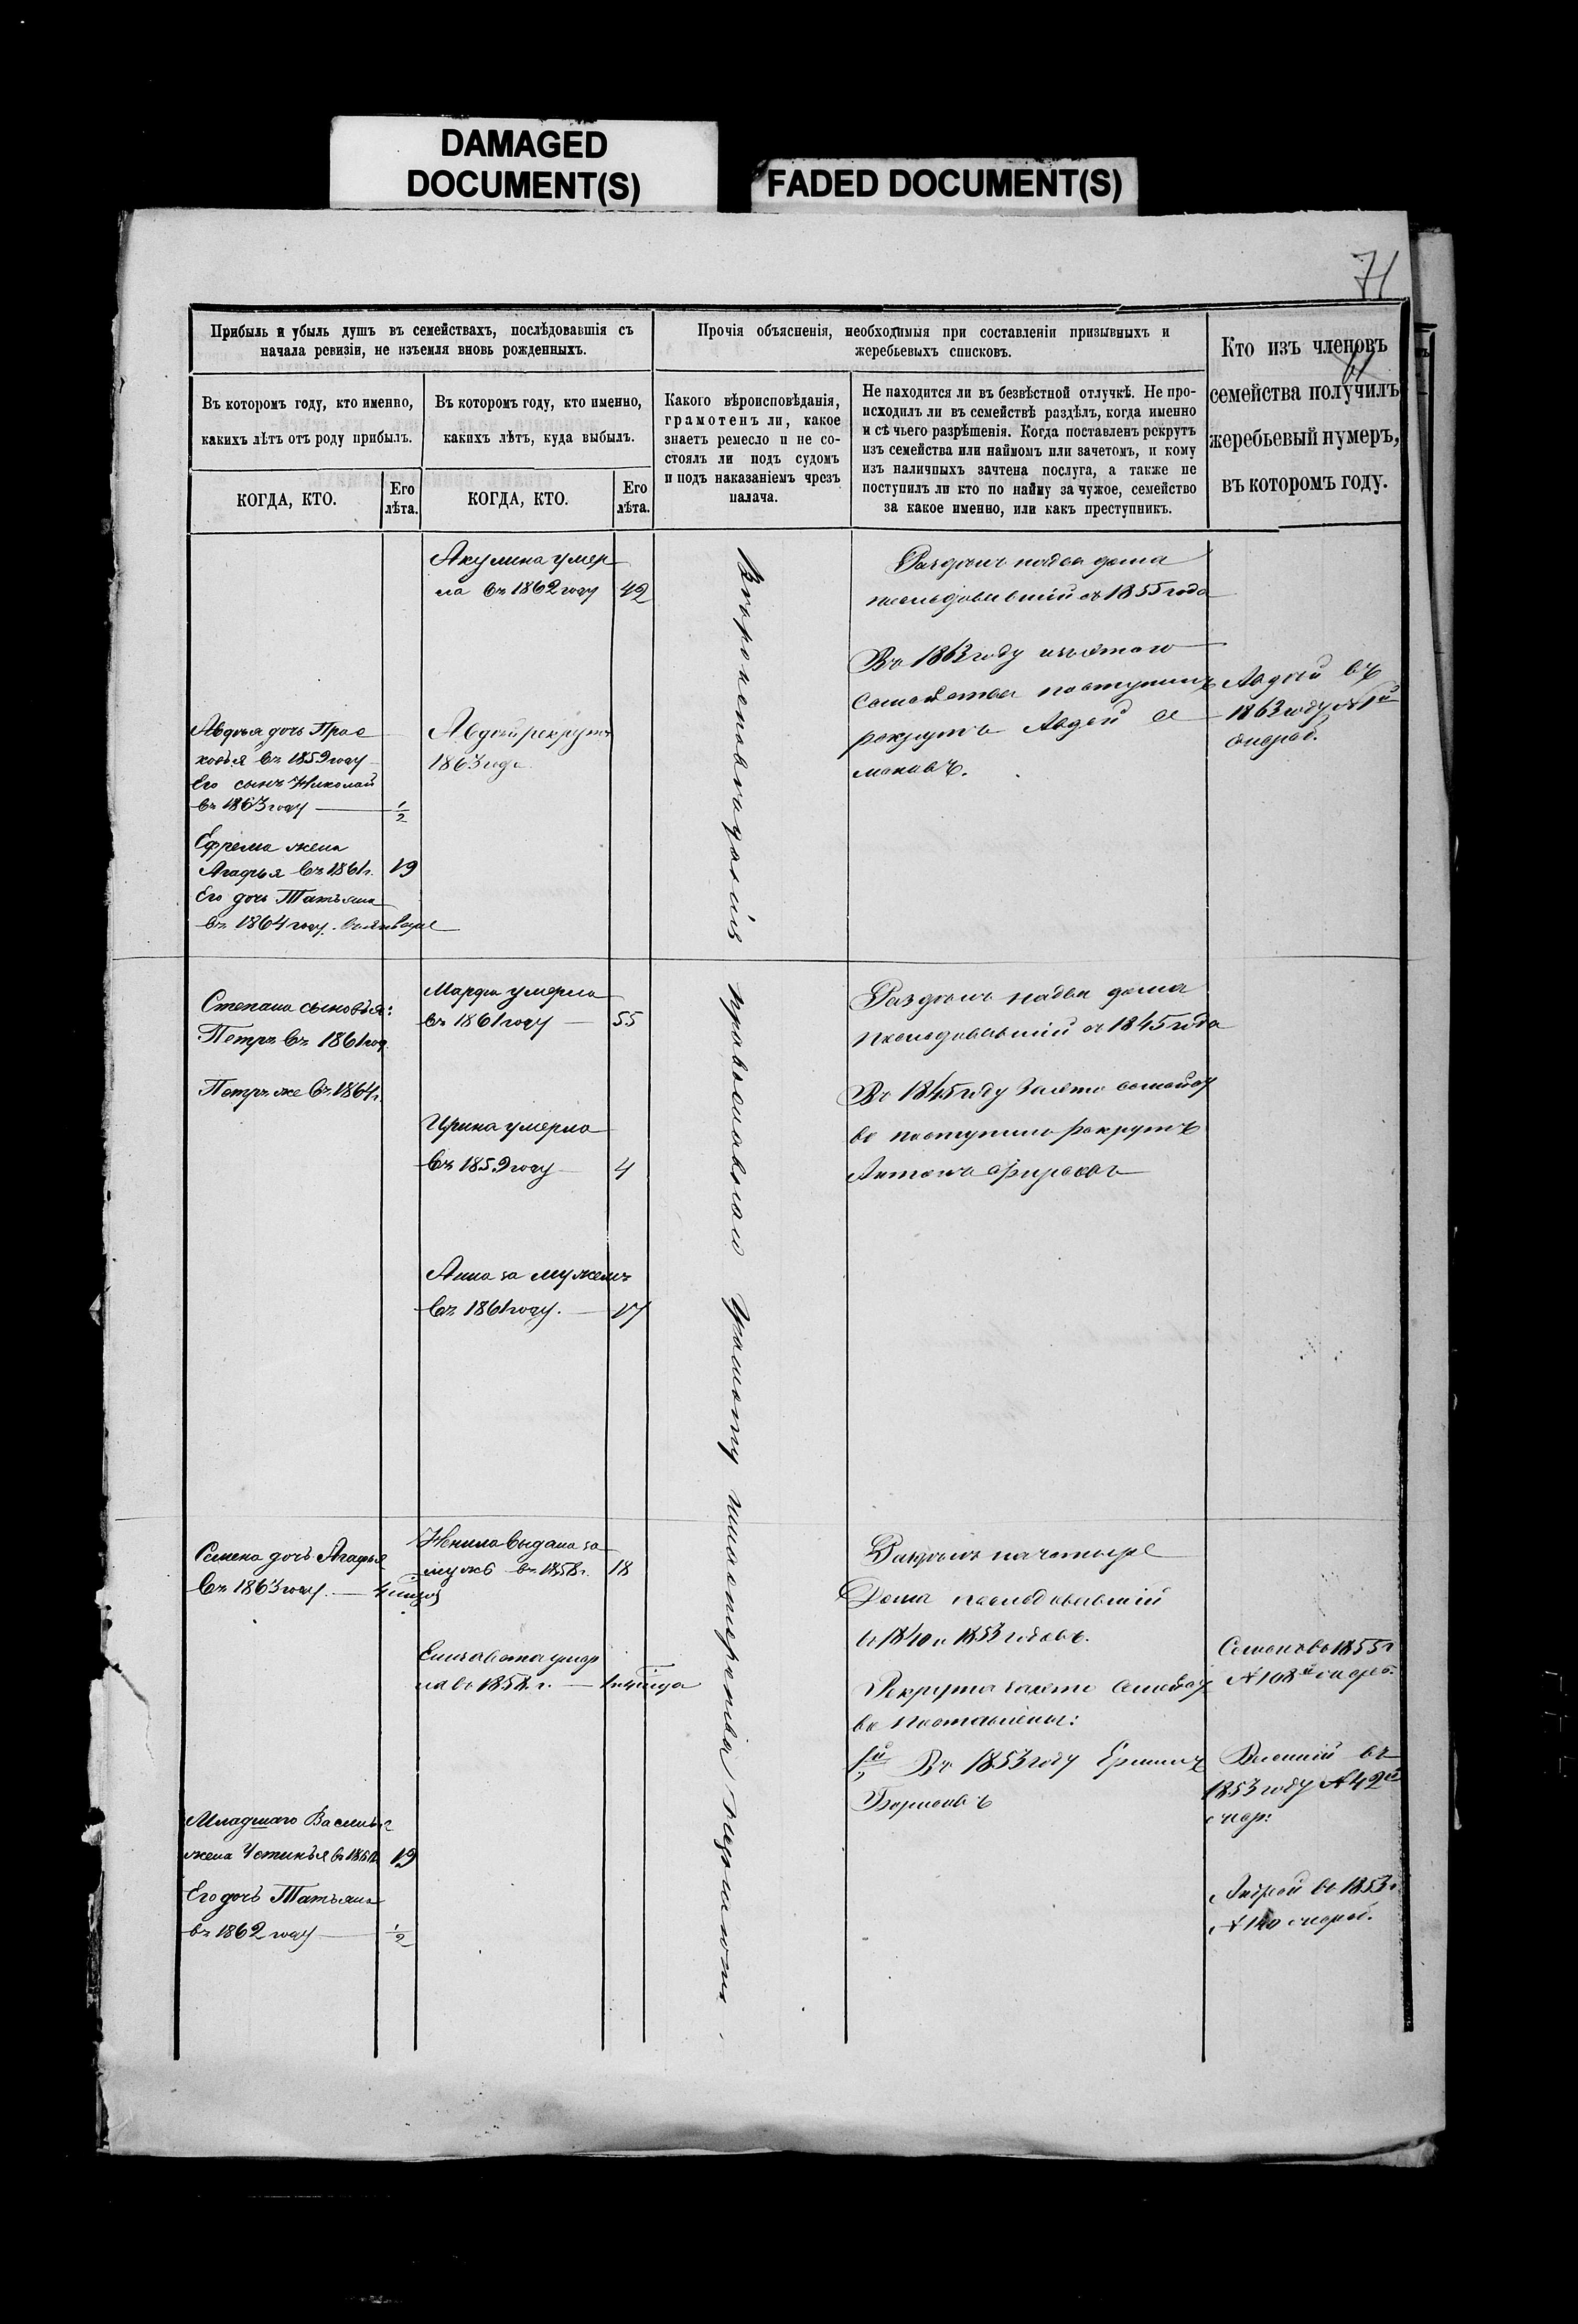 DAMAGED
DOCUMENT(S)
FADED DOCUMENT(S)
71
Прибыль и убыль душъ въ семействахъ, послѣдовавшія съ
начала ревизіи, не изъемля вновь рожденныхъ.
Прочія объясненія, необходимыя при составленіи призывныхъ и
жеребьевыхъ списковъ.
Кто изъ членовъ
семейства получилъ
жеребьевый нумеръ,
въ которомъ году.
Въ которомъ году, кто именно,
какихъ лѣтъ отъ роду прибылъ.
Въ которомъ году, кто именно,
какихъ лѣтъ, куда выбылъ.
Какого вѣроисповѣданія,
грамотенъ ли, какое
знаетъ ремесло и не со-
стоялъ ли подъ судомъ
и подъ наказаніемъ чрезъ
палача.
Не находится ли въ безвѣстной отлучкѣ. Не про-
исходилъ ли въ семействѣ раздѣлъ, когда именно
и съ чьего разрѣшенія. Когда поставленъ рекрутъ
изъ семейства или наймомъ или зачетомъ, и кому
изъ наличныхъ зачтена послуга, а также не
поступилъ ли кто по найму за чужое, семейство
за какое именно, или какъ преступникъ.
КОГДА, КТО.
Его
лѣта.
КОГДА, КТО.
Его
лѣта.
Акулина умер
ла въ 1862 году 42
Авдѣя дочь Прас
ковья въ 1859 году
Его сынъ Николай
въ 1863 году 1/2
Ефрема жена
Агафья въ 1861 г. 19
Его дочь Татьяна
въ 1864 году. въ январе
Авдѣй рекрутъ
1863 года
Вѣроисповѣданія православнаго грамоту
Раздѣлъ на два дома
послѣдовавшій съ 1855 года
Въ 1863 году изъ этаго
Семейства поступилъ
рекрутъ Авдей Се
меновъ.
Авдѣй въ
1863 году № 1й
Степана сыновья:
Петръ въ 1861 год.
Петръ же въ 1864 г.
Марфа умерла
въ 1861 году 55
Ирина умерла
въ 1859 году 4
Анна за мужемъ
въ 1861 году. 17
Раздѣлъ на два дома
послѣдовавшій съ 1845 года
Въ 1845 году
во поступилъ рекрутъ
Антонъ Фирсовъ
Семена дочь Агафья
въ 1863 году.
Ненила выдана за
мужъ въ 1858 г. 18
Елизавета умер
ла въ 1858 г.
Младшаго Василья
жена Устинья въ 19
Его дочь Татьяна
въ 1862 году 1/2
Раздѣлъ на четыре
Дома послѣдовавшій
въ 1840 и 1853 годахъ.
Рекрута
во поставлены:
1й Въ 1853 году
Семенъ въ 1855 г
№ 108й
Василій въ
1853 году № 42й
Андрей въ 1853 г.